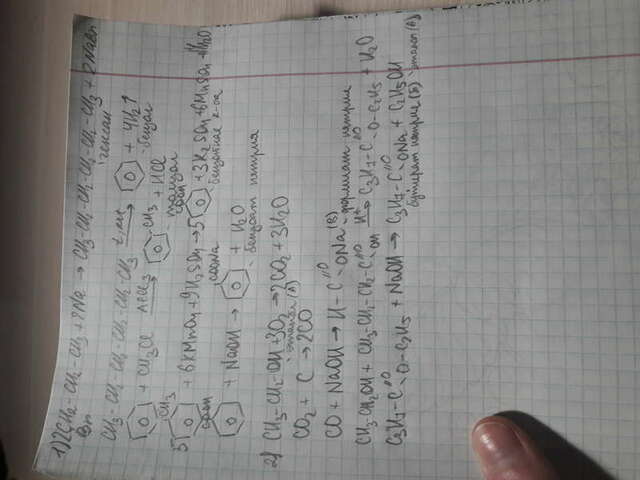 1) 2CH₂-CH₂-CH₃ + 2Na → CH₃-CH₂-CH₂-CH₂-CH₂-CH₃ + 2NaBr
Br гексан
CH₃-CH₂-CH₂-CH₂-CH₂-CH₃ t, кат → + 4H₂↑
бензол
+ CH₃Cl AlCl₃ → CH₃ + HCl
толуол
CH₃ COOH
5 + 6KMnO₄ + 9H₂SO₄ → 5 + 3K₂SO₄ + 6MnSO₄ + 14H₂O
бензойная к-та
COOH COONa
+ NaOH → + H₂O
бензоат натрия
2) CH₃-CH₂-OH + 3O₂ → 2CO₂ + 3H₂O
этанол (А)
CO₂ + C → 2CO
CO + NaOH → H-C=O ONa (В)
формиат натрия
CH₃-CH₂OH + CH₃-CH₂-CH₂-C=O OH H⁺ → C₃H₇-C=O O-C₂H₅ + H₂O
C₃H₇-C=O O-C₂H₅ + NaOH → C₃H₇-C=O ONa + C₂H₅OH
бутират натрия (Б) этанол (А)